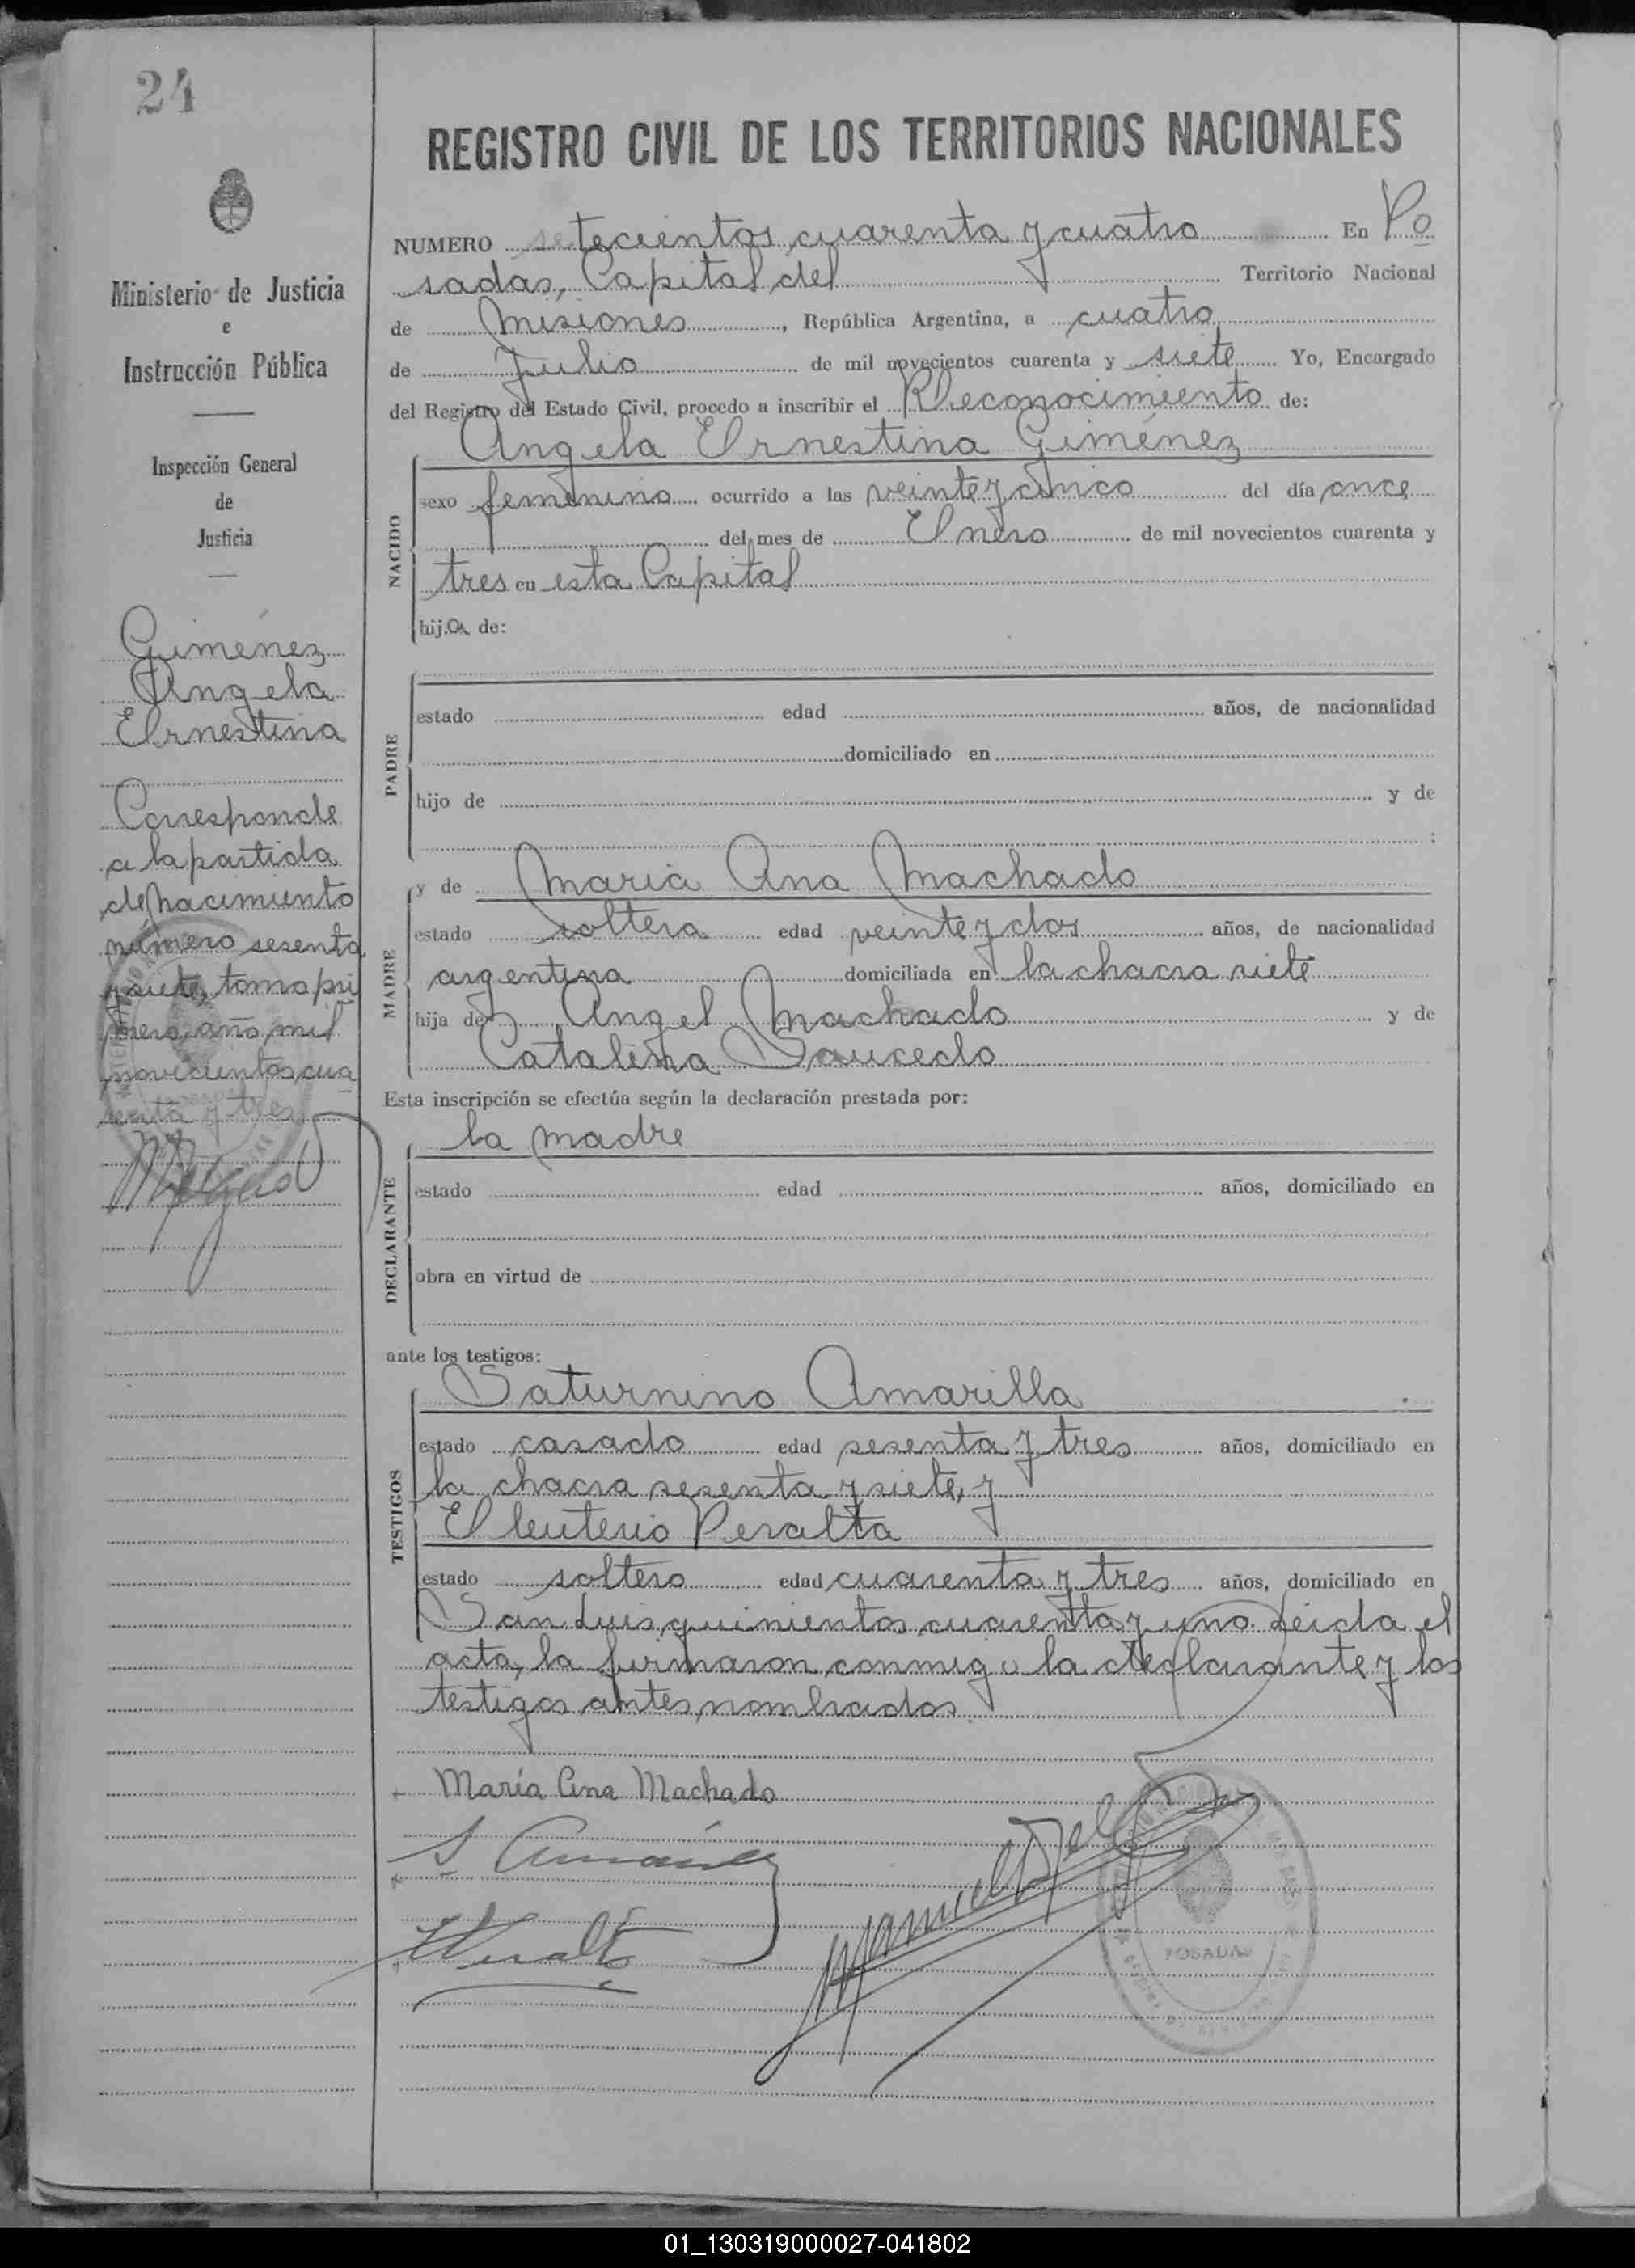 24
REGISTRO CIVIL DE LOS TERRITORIOS NACIONALES
Ministerio de Justicia
e
Instrucción Pública
Inspección General
de
Justicia
Giménez
Angela
Ernestina
Corresponde
a la partida
de nacimiento
número sesenta
y siete, tomo pri
mero, año mil
novecientos cua
renta y tres
NUMERO setecientos cuarenta y cuatro En Po
sadas, Capital del Territorio Nacional
de Misiones, República Argentina, a cuatro
de Julio de mil novecientos cuarenta y siete Yo, Encargado
del Registro del Estado Civil, procedo a inscribir el Reconocimiento de:
Angela Ernestina Giménez
NACIDO
sexo femenino ocurrido a las veinte y cinco del día once
del mes de Enero de mil novecientos cuarenta y
tres en esta Capital
hija de:
PADRE
estado edad años, de nacionalidad
domiciliado en
hijo de y de
;
MADRE
y de Maria Ana Machado
estado soltera edad veinte y dos años, de nacionalidad
argentina domiciliada en la chacra siete
hija de Angel Machado y de
Catalina Saucedo
Esta inscripción se efectúa según la declaración prestada por:
DECLARANTE
la madre
estado edad años, domiciliado en
obra en virtud de
ante los testigos:
TESTIGOS
Saturnino Amarilla
estado casado edad sesenta y tres años, domiciliado en
la chacra sesenta y siete, y
Eleuterio Peralta
estado soltero edad cuarenta y tres años, domiciliado en
San Luis quinientos cuarenta y uno. Leida el
acta, la firmaron conmigo la declarante y los
testigos antes nombrados.
María Ana Machado
POSADAS
01_130319000027-041802